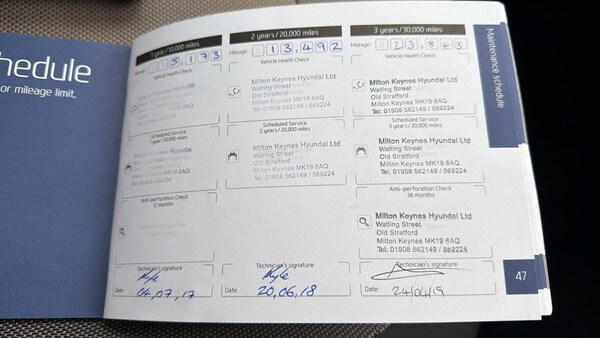 hedule
or mileage limit.
1 year/10,000 miles
Mileage: 5,173
Vehicle Health Check
Scheduled Service
1 year/10,000 miles
Hyundai
Anti-perforation Check
12 months
Technician's signature
Kyle
Date: 04,07,17
2 years/20,000 miles
Mileage: 0 13,492
Vehicle Health Check
Milton Keynes Hyundai Ltd
Watling Street
Old Stratford
Milton Keynes MK19 6AQ
Tel: 01908 562149 / 569224
Scheduled Service
2 years/20,000 miles
Milton Keynes Hyundai Ltd
Watling Street
Old Stratford
Milton Keynes MK19 6AQ
Tel: 01908 562149 / 569224
Technician's signature
Kyle
Date: 20,06,18
3 years/30,000 miles
Mileage: 0 23,843
Vehicle Health Check
Milton Keynes Hyundai Ltd
Watling Street
Old Stratford
Milton Keynes MK19 6AQ
Tel: 01908 562149 / 569224
Scheduled Service
3 years/30,000 miles
Milton Keynes Hyundai Ltd
Watling Street
Old Stratford
Milton Keynes MK19 6AQ
Tel: 01908 562149 / 569224
Anti-perforation Check
36 months
Milton Keynes Hyundai Ltd
Watling Street
Old Stratford
Milton Keynes MK19 6AQ
Tel: 01908 562149 / 569224
Technician's signature
Date: 24/04/19
Maintenance schedule
47